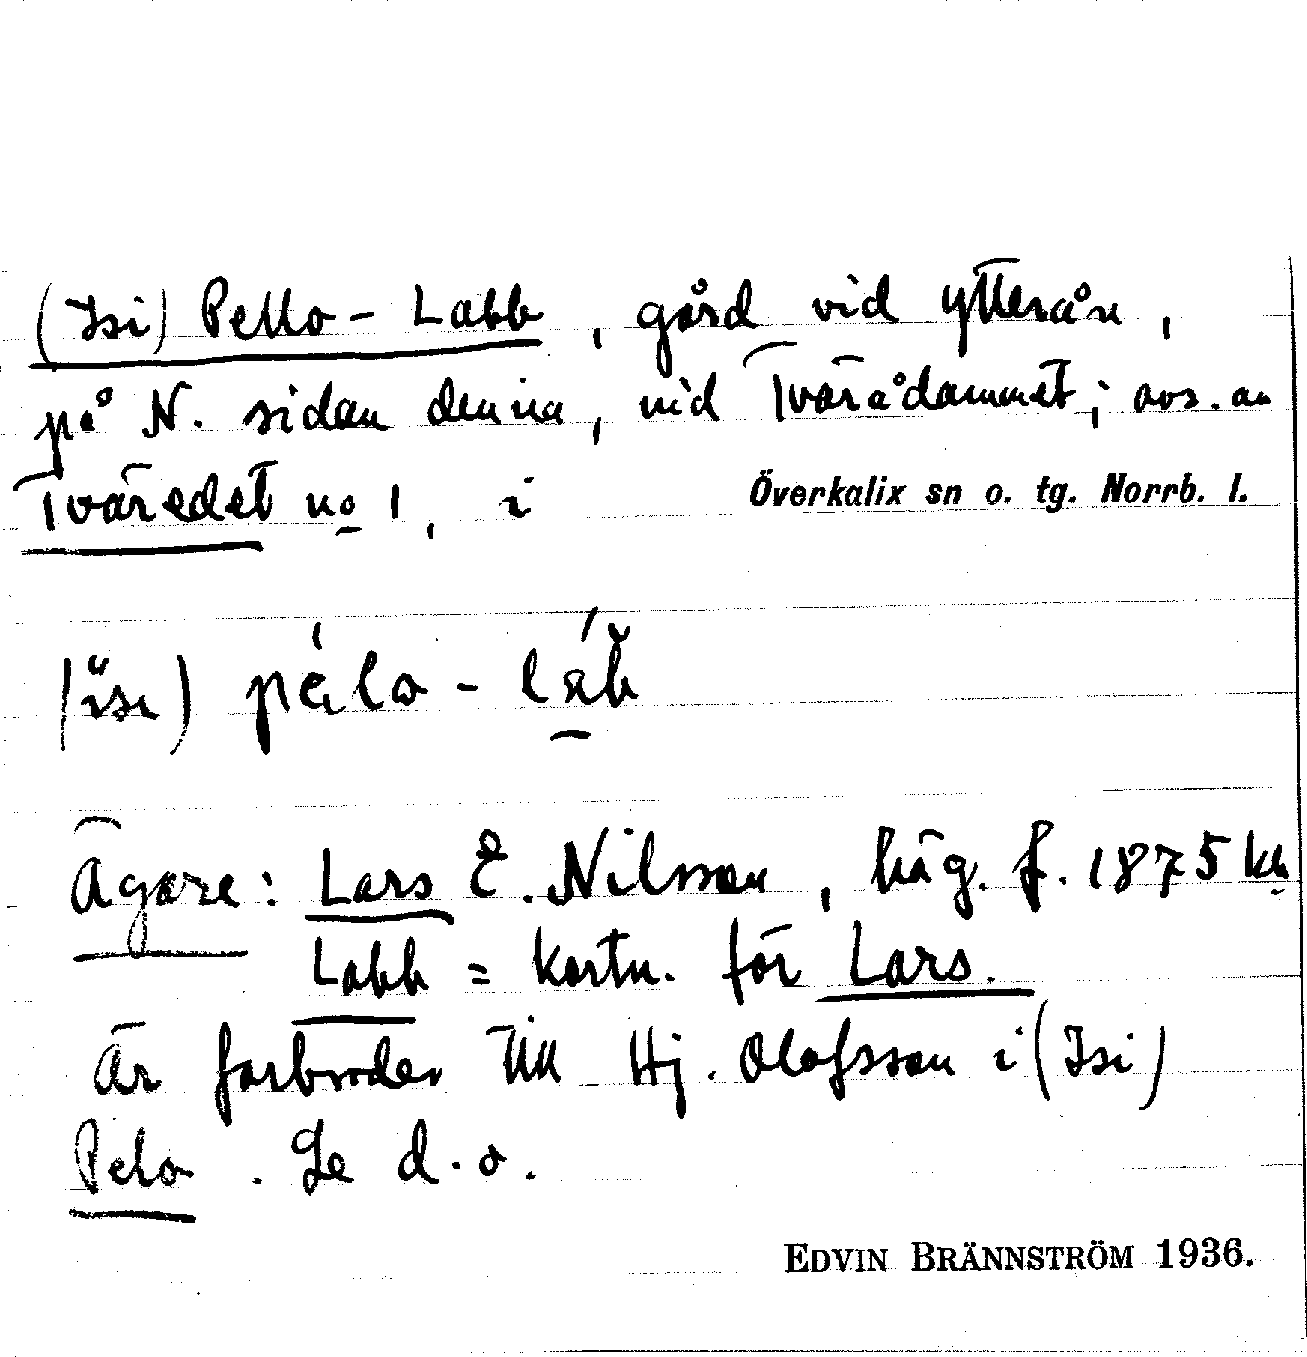 (Isi) Pello-Labb, gård vid ytterån,
på N. sidan denna, vid Tvärådammet; avs. av
Tväredet no 1, i Överkalix sn o. tg. Norrb. l.
Ägare: Lars E. Nilsson, häg. f. 1875 kh
Labb = kortn. för Lars.
Är farbroder till Hj. Olofsson i (Isi)
Pelo. Se d.o.
EDVIN BRÄNNSTRÖM 1936.